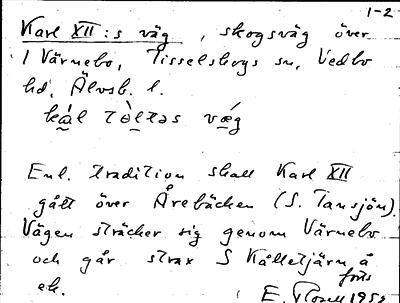 1-2
Karl XII:s väg, skogsväg över
1 Värnebo, Tisselskogs sn, Vedbo
hd, Älvsb. l.
kàl tòltəs væ̀g
Enl. tradition skall Karl XII
gått över Årebäcken (S. Tansjön).
Vägen sträcker sig genom Värnebo
och går strax S Kålletjärn å
ek. forts
E. Rosell 1952